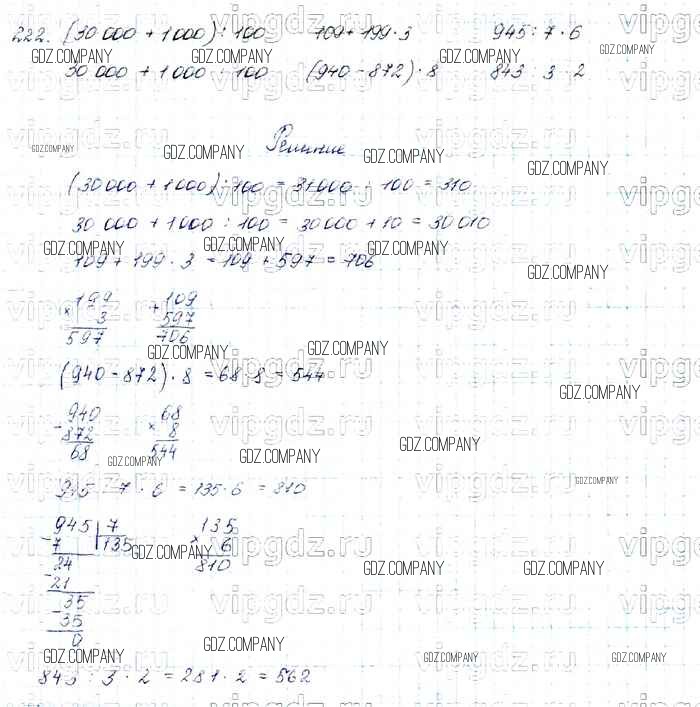 222. (30 000 + 1 000) : 100 109 + 199 · 3 945 : 7 · 6
30 000 + 1 000 : 100 (940 - 872) · 8 843 : 3 · 2
Решение
(30 000 + 1 000) : 100 = 31 000 : 100 = 310
30 000 + 1 000 : 100 = 30 000 + 10 = 30 010
109 + 199 · 3 = 109 + 597 = 706
× 199 + 109
3 597
597 706
(940 - 872) · 8 = 68 · 8 = 544
- 940 × 68
872 8
68 544
945 : 7 · 6 = 135 · 6 = 810
- 945 | 7 × 135
7 135 6
- 24 810
21
- 35
35
0
843 : 3 · 2 = 281 · 2 = 562
GDZ.COMPANY
vipgdz.ru